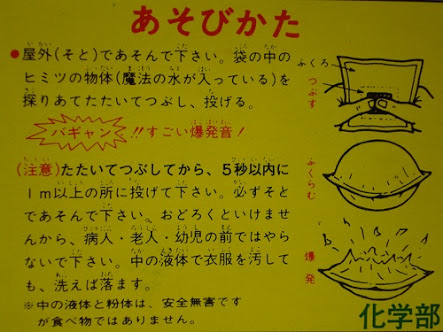 あそびかた
●屋外(そと)であそんで下さい。袋の中の
ヒミツの物体(魔法の水が入っている)を
探りあてたたいてつぶし、投げる。
バギャン!!すごい爆発音!
(注意)たたいてつぶしてから、5秒以内に
1m以上の所に投げて下さい。必ずそと
であそんで下さい。おどろくといけませ
んから、病人・老人・幼児の前ではやら
ないで下さい。中の液体で衣服を汚して
も、洗えば落ます。
※中の液体と粉体は、安全無害です
が食べ物ではありません。
ふくろ
つぶす
ふくらむ
爆発
化学部